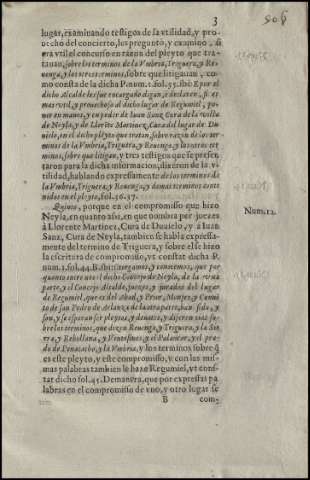 3
lugar, examinando testigos de la vtilidad, y pro
uecho del concierto, les pregunto, y examino, si
era vtil el concurso en razon del pleyto que tra-
tauan, sobre los terminos de la Vmbria, Triguera, y Re-
uenga, y los otros terminos, sobre que litigauan, co-
mo consta de la dicha P. num. 1. fol. 35. ibi: E por el
dicho Alcalde les fue encargado digan, è declaren, si es
mas vtil, y prouechoso al dicho lugar de Regumiel, po-
ner en manos, y en poder de Iuan Sanz Cura de la villa
de Neyla, y de Llorẽte Martinez, Cura del lugar de Du-
uielo, en el dicho pleyto que tratan, sobre razon de los ter-
minos de la Vmbria, Triguera, y Reuenga, y los otros ter-
minos, sobre que litigan, y tres testigos que se presen-
taron para la dicha informacion, dixeron de la vti-
lidad, hablando expressamente de los terminos de
la Vmbria, Triguera, y Reuenga, y demas terminos conte
nidos en el pleyto, fol. 36. 37.
Quinto, porque en el compromisso que hizo
Neyla, en quanto assi, en que nombra por juezes
à Llorente Martinez, Cura de Duuielo, y a Iuan
Sanz, Cura de Neyla, tambien se habla expressa-
mente del termino de Triguera, y sobre el se hizo
la escritura de compromisso, vt constat dicha P.
num. 1. fol. 44. B. ibi: Otorgamos, y conocemos, que por
quanto entre nos el dicho Concejo de Neyla, de la vna
parte, y el Concejo, Alcalde, juezes, y jurados del lugar
de Regumiel, que es del Abad, y Prior, Monjes, y Conuē
to de san Pedro de Arlança de la otra parte, han sido, y
son, y se esperan ser pleytos, y demandas, y diferencias so-
bre los terminos, que dizen Reuenga, y Triguera, y la Sie
rra, y Rebollana, y Ventosinos, y el Palancar, y el pra-
do de Penacacho, y la Vmbria, y los terminos sobre q̃
es este pleyto, y este compromisso, y con las mis-
mas palabras tambien le haze Regumiel, vt cons-
tat dicho fol. 45. De manera, que por expressas pa
labras en el compromisso de vno, y otro lugar se
B com-
Num. 12.